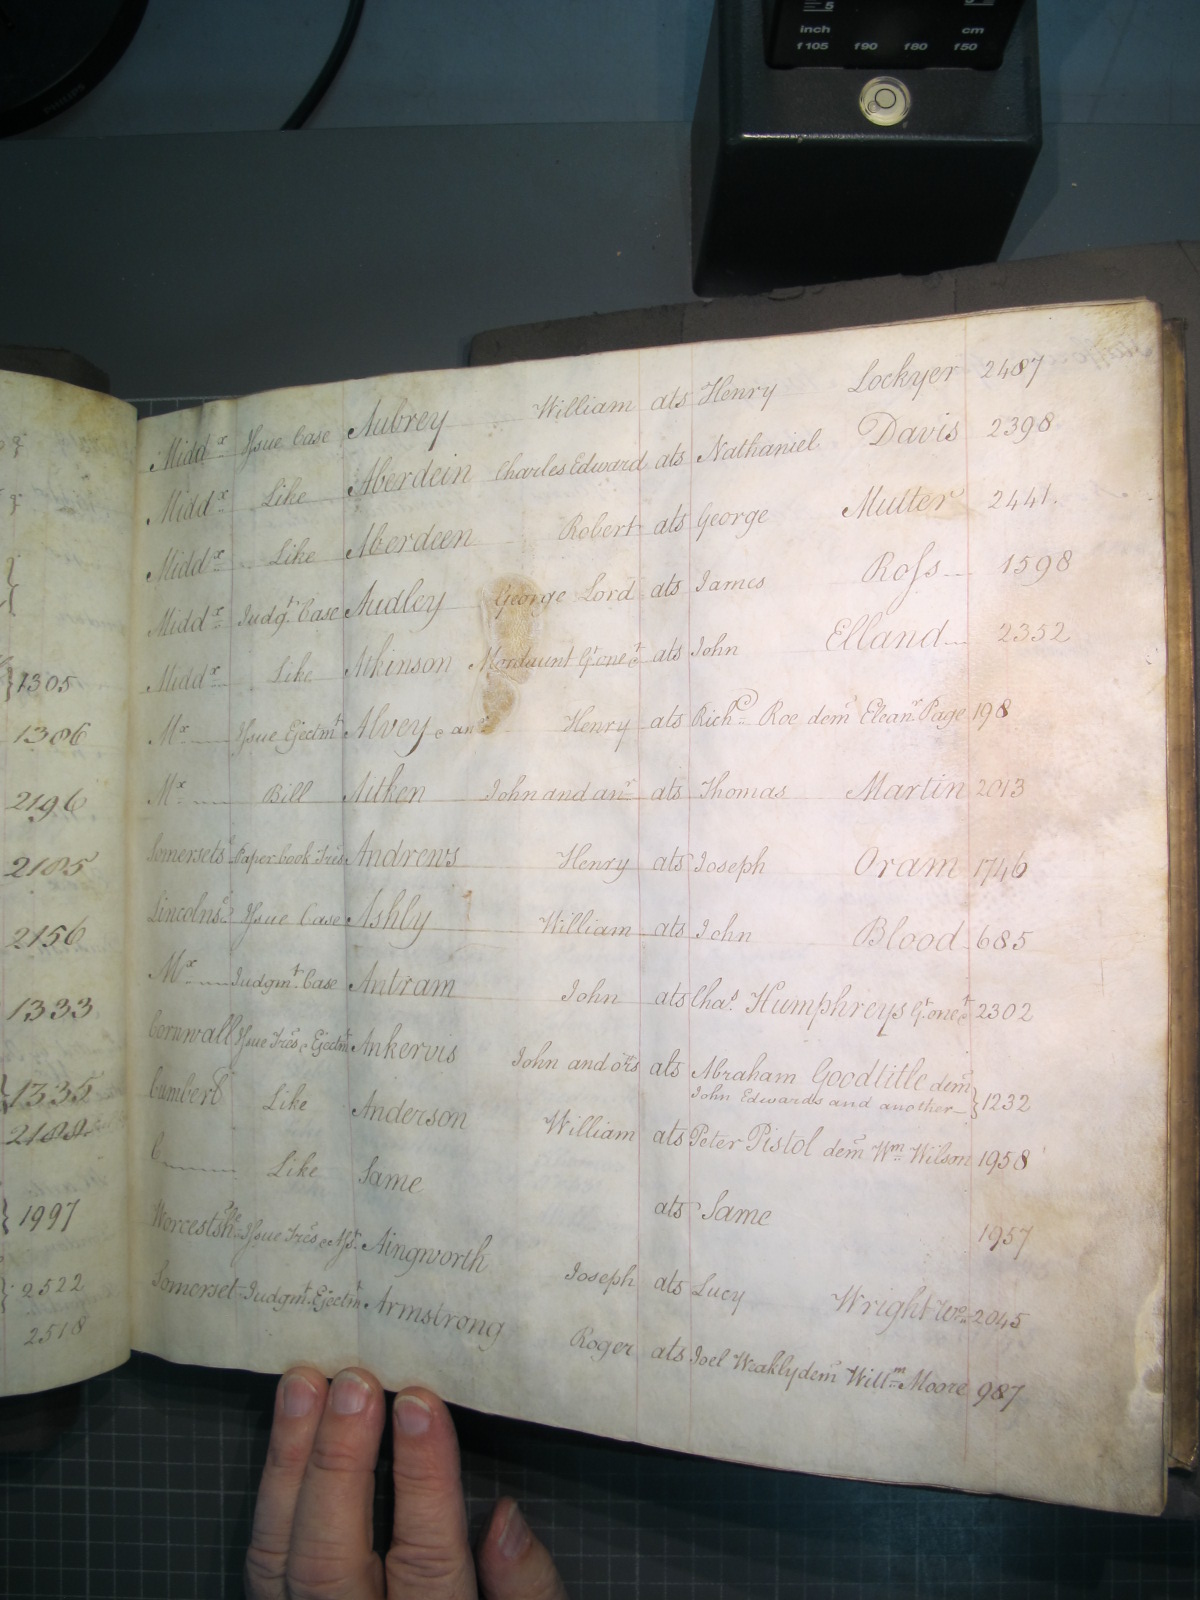 5
inch cm
f105 f90 f80 f50
PHILIPS
Midd.x Issue Case Aubrey William ats Henry Lockyer 2487
Midd.x Like Aberdein Charles Edward ats Nathaniel Davis 2398
Midd.x Like Aberdeen Robert ats George Mutter 2441.
Midd.x Judgt. Case Audley George Lord ats James Ross 1598
Midd.x Like Atkinson Mordaunt Gt. one &ct ats John Elland 2352
Mx Issue Ejectmt Alvey & anr Henry ats Richd Roe demr Eleanr Page 198
Mx Bill Aitken John and anr ats Thomas Martin 2013
Somersets Paper book Tres Andrews Henry ats Joseph Oram 1746
Lincolns Issue Case Ashby William ats John Blood 685
Mx Judgmt. Case Antram John ats Chas. Humphreys Gt. one &ct 2302
Cornwall Issue Tres & Ejectmt Ankervis John and ors ats Abraham Goodtitle demr
John Edwards and another } 1232
Cumberld Like Anderson William ats Peter Pistol demr Wm Wilson 1958
C Like Same ats Same 1957
Worcestshre Issue Tres & Asst. Aingworth Joseph ats Lucy Wright Wo. 2045
Somerset Judgmt. Ejectmt. Armstrong Roger ats Joel Weakly demr Willm Moore 987
1305
1306
2196
2185
2156
1333
1335
1997
2522
2518